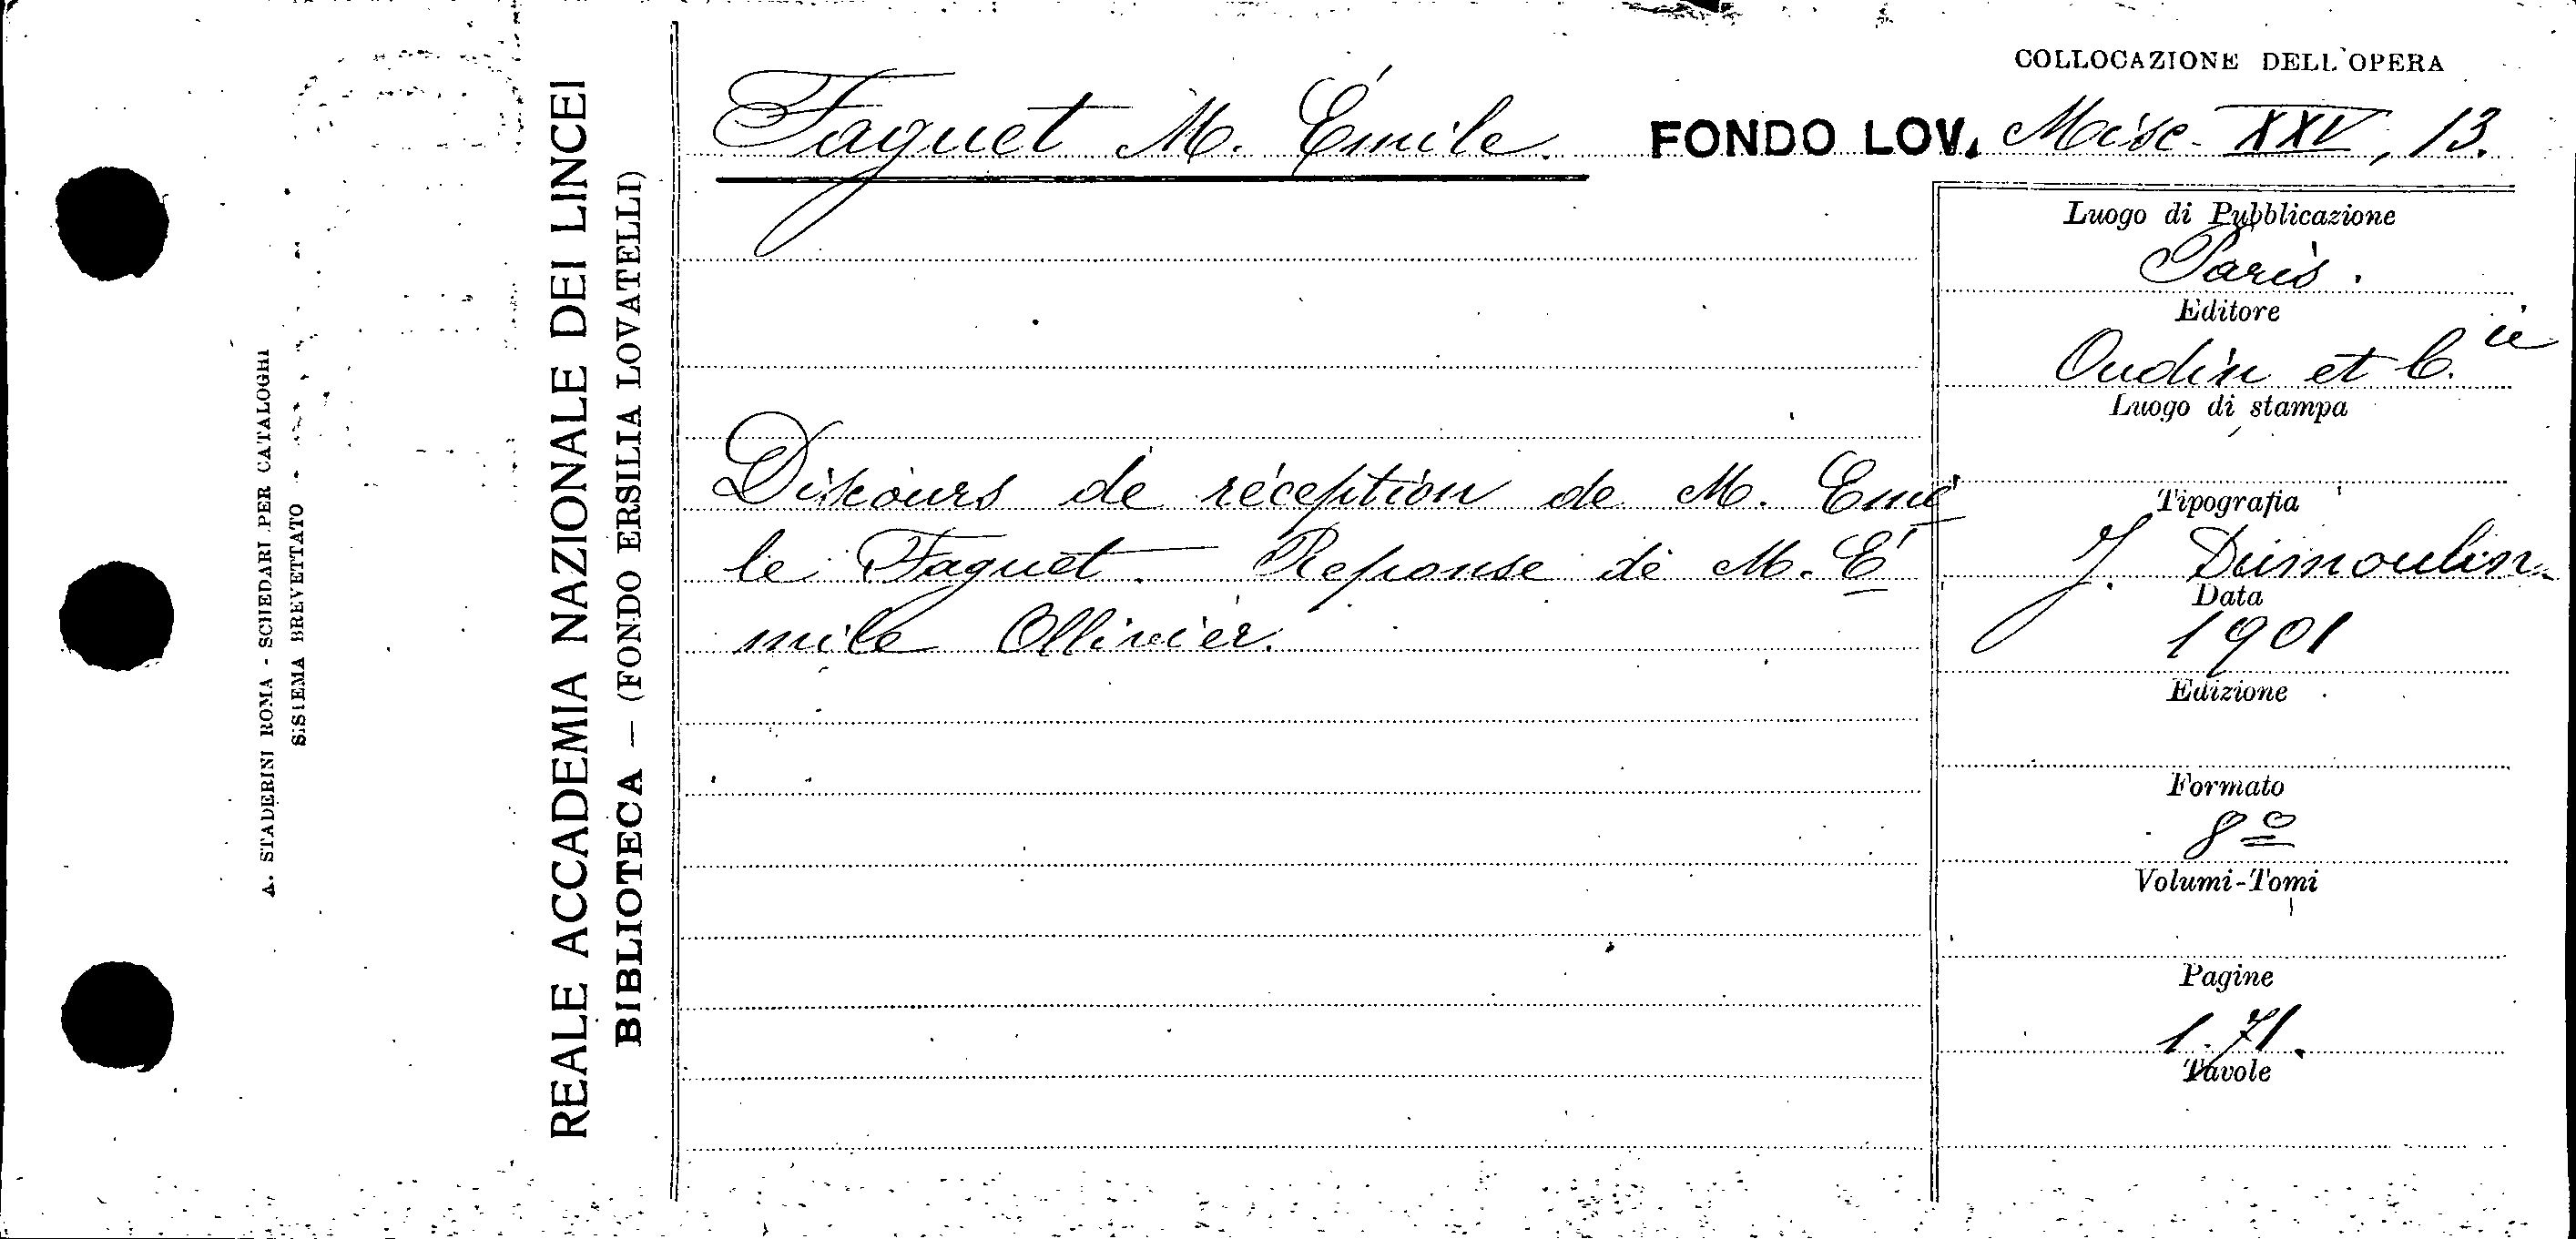 COLLOCAZIONE DELL'OPERA
Faguet M. Émile. FONDO LOV. Misc. XXV, 13.
Discours de réception de M. Emi
le Faguet. Reponse de M. É
mile Ollivier.
Luogo di Pubblicazione
Paris.
Editore
Oudin et C.ie
Luogo di stampa
Tipografia
J. Dumoulin
Data
1901
Edizione
Formato
8º
Volumi-Tomi
Pagine
1.71.
Tavole
REALE ACCADEMIA NAZIONALE DEI LINCEI
BIBLIOTECA — (FONDO ERSILIA LOVATELLI)
A. STADERINI ROMA - SCHEDARI PER CATALOGHI
SISTEMA BREVETTATO